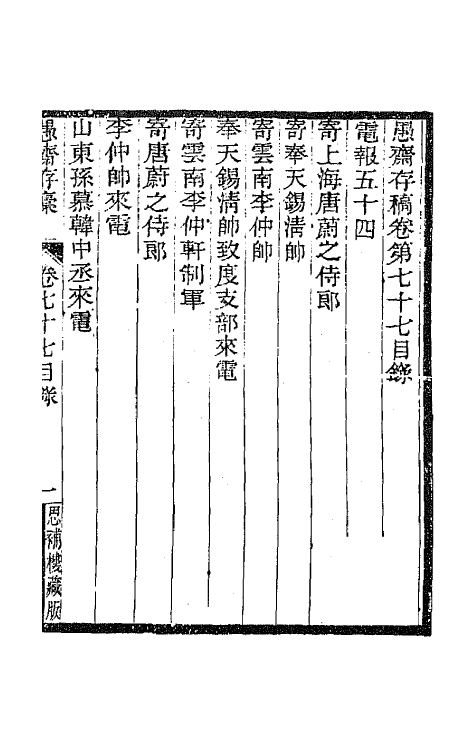 愚齋存稿卷第七十七目錄
電報五十四
寄上海唐蔚之侍郎
寄奉天錫清帥
寄雲南李仲帥
奉天錫清帥致度支部來電
寄雲南李仲軒制軍
寄唐蔚之侍郎
李仲帥來電
山東孫慕韓中丞來電
愚齋存稾 卷七十七目錄 一 思補樓藏版